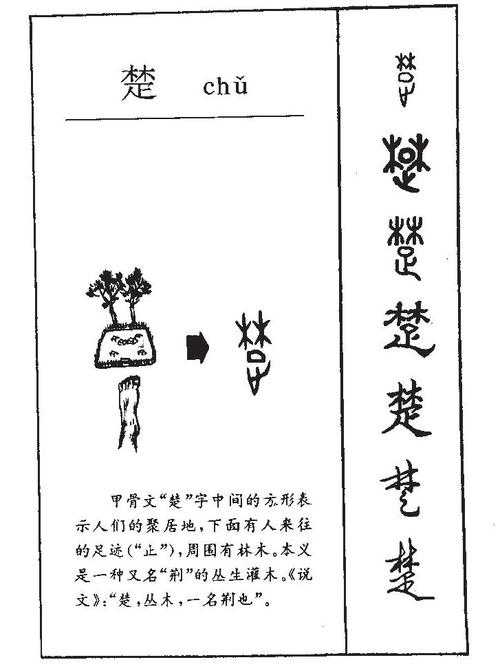 楚 chǔ
甲骨文“楚”字中间的方形表
示人们的聚居地，下面有人来往
的足迹(“止”)，周围有林木。本义
是一种又名“荆”的丛生灌木。《说
文》：“楚，丛木，一名荆也”。
楚
楚
楚
楚
楚
楚
楚
楚